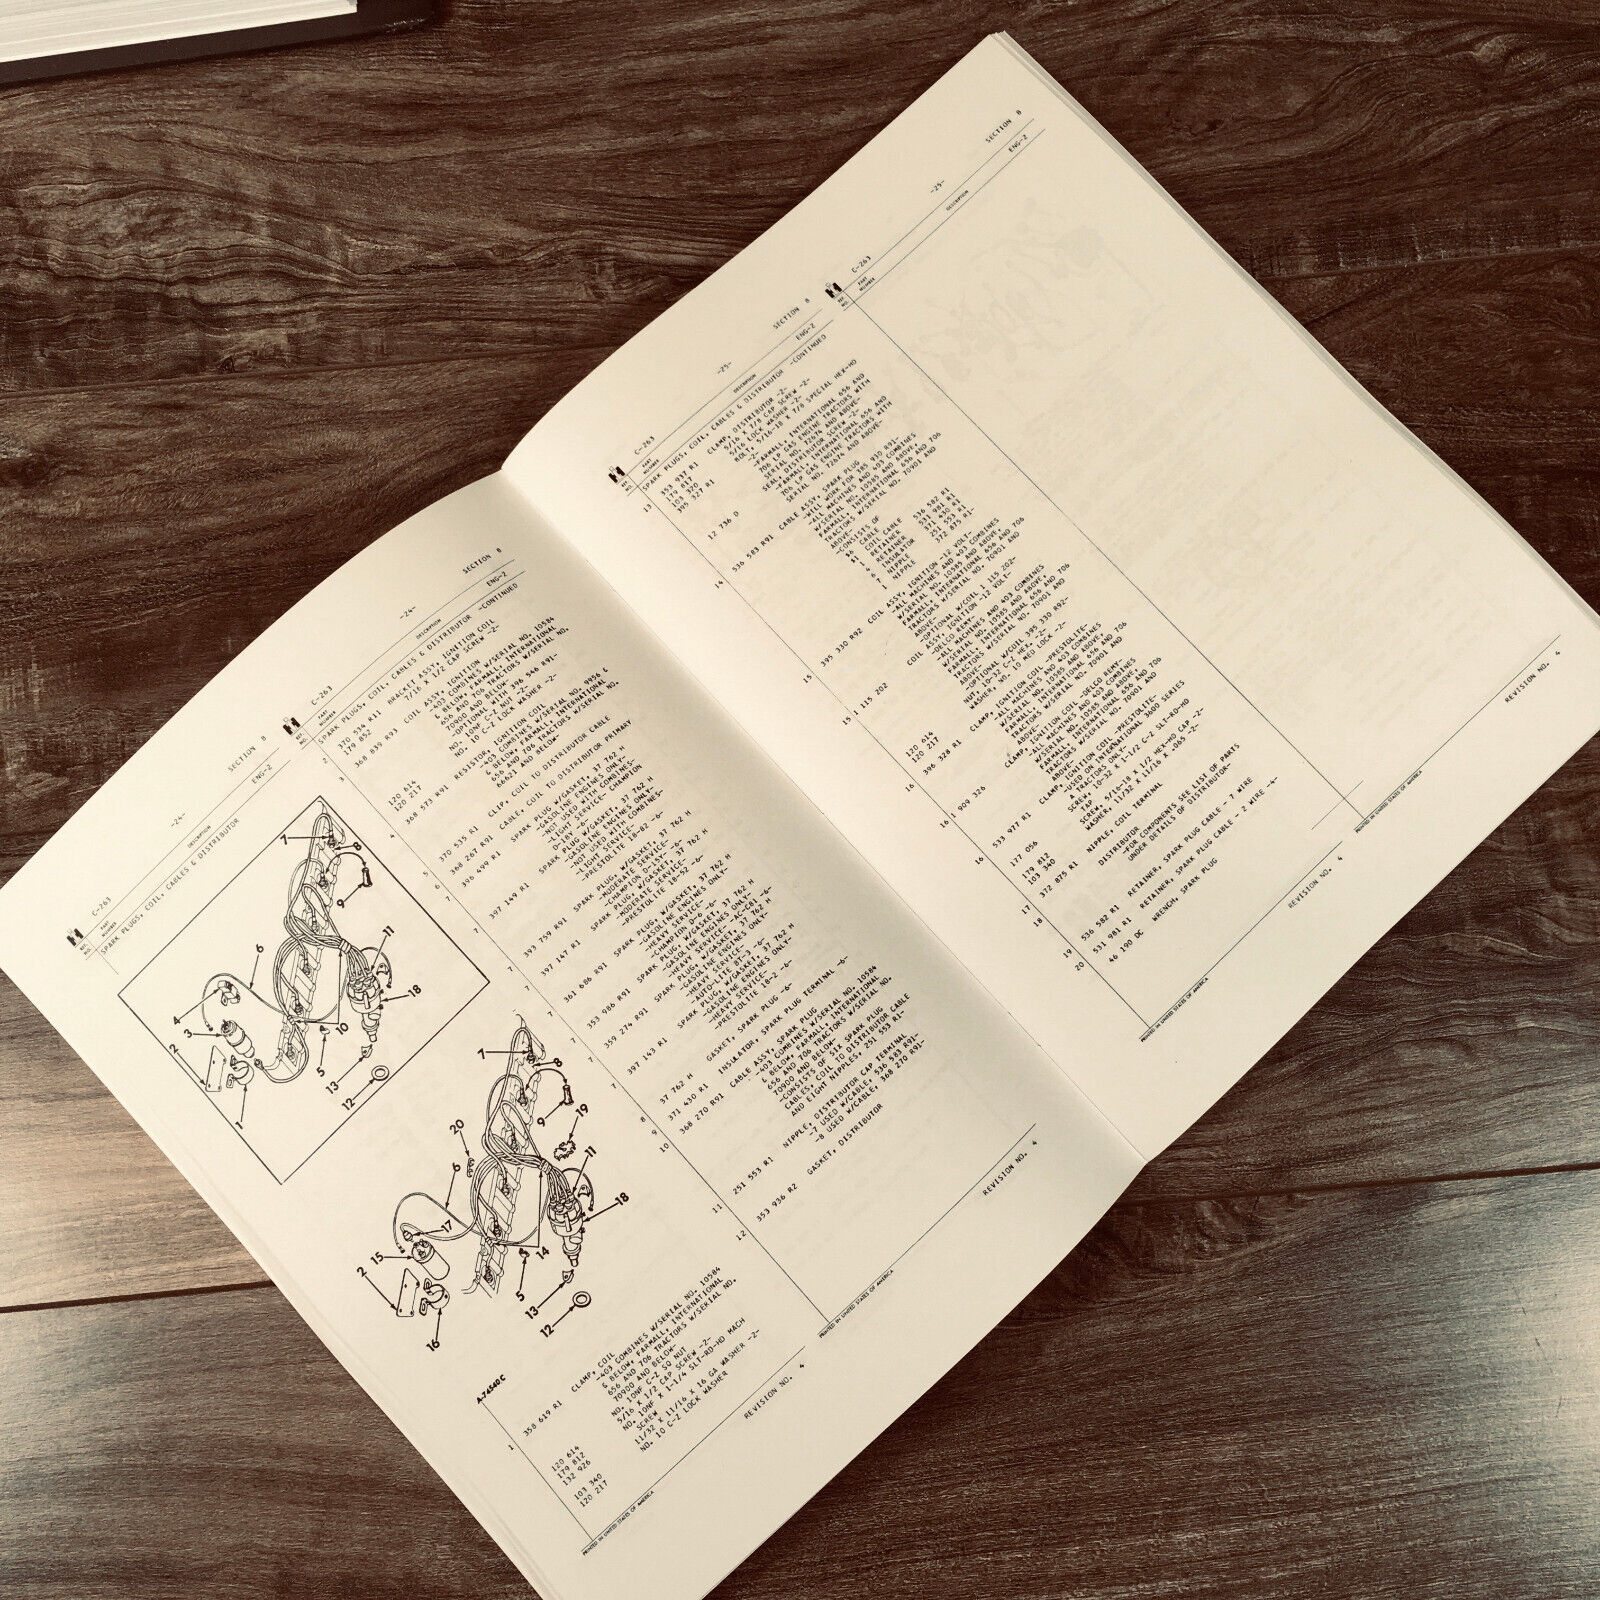 SECTION B
-24-
C-263
ENG-2
DESCRIPTION
REF. NO.
PART NUMBER
SPARK PLUGS, COIL, CABLES & DISTRIBUTOR
7
8
9
6
11
4
3
2
18
10
5
13
12
1
7
8
9
19
20
6
11
18
17
15
2
14
5
13
12
16
A-74540C
1 358 619 R1 CLAMP, COIL
-403 COMBINES W/SERIAL NO. 10584
& BELOW, FARMALL, INTERNATIONAL
656 AND 706 TRACTORS W/SERIAL NO.
70900 AND BELOW-
120 614 NO. 10NF C-Z SQ NUT
179 812 5/16 X 1/2 CAP SCREW -2-
132 926 NO. 10NF X 1-1/4 SLT-RD-HD MACH
SCREW
103 340 11/32 X 11/16 X 16 GA WASHER -2-
120 217 NO. 10 C-Z LOCK WASHER
PRINTED IN UNITED STATES OF AMERICA
REVISION NO. 4
SECTION B
-24-
C-263
ENG-2
DESCRIPTION
REF. NO.
PART NUMBER
SPARK PLUGS, COIL, CABLES & DISTRIBUTOR -CONTINUED
2 370 594 R11 BRACKET ASSY, IGNITION COIL
179 852 7/16 X 1/2 CAP SCREW -2-
3 368 839 R93 COIL ASSY, IGNITION
-403 COMBINES W/SERIAL NO. 10584
& BELOW, FARMALL, INTERNATIONAL
656 AND 706 TRACTORS W/SERIAL NO.
70900 AND BELOW-
-OPTIONAL WITH 396 546 R91-
120 614 NO. 10NF C-Z NUT -2-
120 217 NO. 10 C-Z LOCK WASHER -2-
4 368 573 R91 RESISTOR, IGNITION COIL
-403 COMBINES W/SERIAL NO. 9856
& BELOW, FARMALL, INTERNATIONAL
656 AND 706 TRACTORS W/SERIAL NO.
66621 AND BELOW-
5 370 535 R1 CLIP, COIL TO DISTRIBUTOR CABLE
6 368 267 R91 CABLE, COIL TO DISTRIBUTOR PRIMARY
7 396 499 R1 SPARK PLUG W/GASKET, 37 762 H
-GASOLINE ENGINES ONLY-
-NOT USED W/COMBINES-
-LIGHT SERVICE- CHAMPION
D-18Y -6-
7 397 149 R1 SPARK PLUG W/GASKET, 37 762 H
-GASOLINE ENGINES ONLY-
-NOT USED WITH COMBINES-
-LIGHT SERVICE-
-PRESTOLITE 18-82 -6-
7 393 759 R91 SPARK PLUG, W/GASKET, 37 762 H
-MODERATE SERVICE-
-CHAMPION D-15Y -6-
7 397 147 R1 SPARK PLUG, W/GASKET, 37 762 H
-MODERATE SERVICE-
-PRESTOLITE 18-52 -6-
7 361 686 R91 SPARK PLUG, W/GASKET, 37 762 H
-GASOLINE ENGINES ONLY-
-HEAVY SERVICE-
-CHAMPION D-6 -6-
7 353 986 R91 SPARK PLUG, W/GASKET, 37 762 H
-GASOLINE ENGINES ONLY-
-HEAVY SERVICE- -AC-C81 -6-
7 359 274 R91 SPARK PLUG, W/GASKET, 37 762 H
-GASOLINE ENGINES ONLY-
-HEAVY SERVICE-
-AUTO-LITE BT-3 -6-
7 397 143 R1 SPARK PLUG, W/GASKET, 37 762 H
-GASOLINE ENGINES ONLY-
-HEAVY SERVICE-
-PRESTOLITE 18-2 -6-
8 37 762 H GASKET, SPARK PLUG -6-
9 371 430 R1 INSULATOR, SPARK PLUG TERMINAL -6-
10 368 270 R91 CABLE ASSY, SPARK PLUG
-403 COMBINES W/SERIAL NO. 10584
& BELOW, FARMALL, INTERNATIONAL
656 AND 706 TRACTORS W/SERIAL NO.
70900 AND BELOW-
-CONSISTS OF SIX SPARK PLUG
CABLES, COIL TO DISTRIBUTOR CABLE
AND EIGHT NIPPLES, 251 553 R1-
11 251 553 R1 NIPPLE, DISTRIBUTOR CAP TERMINAL
-7 USED W/CABLE, 536 583 R91-
-8 USED W/CABLE, 368 270 R91-
12 353 936 R2 GASKET, DISTRIBUTOR
PRINTED IN UNITED STATES OF AMERICA
REVISION NO. 4
SECTION B
-25-
C-263
ENG-2
DESCRIPTION
REF. NO.
PART NUMBER
SPARK PLUGS, COIL, CABLES & DISTRIBUTOR -CONTINUED
13 353 937 R1 CLAMP, DISTRIBUTOR -2-
179 817 5/16 X 7/8 CAP SCREW -2-
103 320 5/16 LOCK WASHER -2-
BOLT, 5/16-18 X 7/8 SPECIAL HEX-HD
-2-
-FARMALL, INTERNATIONAL 656 AND
706 LP GAS ENGINE TRACTORS WITH
12 736 D SEAL, DISTRIBUTOR SCREW -2-
-FARMALL, INTERNATIONAL 656 AND
706 LP GAS ENGINE TRACTORS WITH
14 536 583 R91 CABLE ASSY, SPARK PLUG
-ALL MACHINES AND 403 COMBINES
W/SERIAL NO. 10585 AND ABOVE,
FARMALL, INTERNATIONAL 656 AND 706
TRACTORS W/SERIAL NO. 70901 AND
ABOVE-
-CONSISTS OF
1 COIL CABLE
RETAINER 536 582 R1
RETAINER 531 981 R1
6 INSULATOR 371 430 R1
NIPPLE 251 553 R1
NIPPLE 372 875 R1-
15 395 330 R92 COIL ASSY, IGNITION -12 VOLT-
-ALL MACHINES AND 403 COMBINES
W/SERIAL NO. 10585 AND ABOVE,
FARMALL, INTERNATIONAL 656 AND 706
TRACTORS W/SERIAL NO. 70901 AND
ABOVE-
-OPTIONAL W/COIL 1 115 202-
15 1 115 202 COIL ASSY, IGNITION -12 VOLT-
-DELCO REMY-
-ALL MACHINES AND 403 COMBINES
W/SERIAL NO. 10585 AND ABOVE,
FARMALL, INTERNATIONAL 656 AND 706
TRACTORS W/SERIAL NO. 70901 AND
ABOVE-
-OPTIONAL W/COIL 395 330 R92-
120 614 NUT, 10-32 C-Z HEX. -2-
120 217 WASHER, NO. 10 MED LOCK -2-
16 396 328 R1 CLAMP, IGNITION COIL -PRESTOLITE-
-ALL MACHINES AND 403 COMBINES
W/SERIAL NO. 10585 AND ABOVE,
FARMALL, INTERNATIONAL 656 AND
706 TRACTORS W/SERIAL NO. 70901 AND
ABOVE-
16 1 909 326 CLAMP, IGNITION COIL -DELCO REMY-
-ALL MACHINES AND 403 COMBINES
W/SERIAL NO. 10585 AND ABOVE,
FARMALL, INTERNATIONAL 656 AND 706
TRACTORS W/SERIAL NO. 70901 AND
ABOVE-
16 533 977 R1 CLAMP, IGNITION COIL -PRESTOLITE-
-USED ON INTERNATIONAL 3600 SERIES
A TRACTORS ONLY-
127 056 SCREW, 10-32 X 1-1/2 C-Z SLT-RD-HD
179 812 SCREW, 5/16-18 X 1/2 HEX-HD CAP -2-
103 340 WASHER, 11/32 X 11/16 X .065 -2-
17 372 875 R1 NIPPLE, COIL TERMINAL
18 DISTRIBUTOR
-FOR COMPONENTS SEE LIST OF PARTS
UNDER DETAILS OF DISTRIBUTOR-
19 536 582 R1 RETAINER, SPARK PLUG CABLE - 7 WIRE
20 531 981 R1 RETAINER, SPARK PLUG CABLE - 2 WIRE -4-
46 190 DC WRENCH, SPARK PLUG
PRINTED IN UNITED STATES OF AMERICA
REVISION NO. 4
SECTION B
-25-
C-263
ENG-2
DESCRIPTION
REF. NO.
PART NUMBER
PRINTED IN UNITED STATES OF AMERICA
REVISION NO. 4